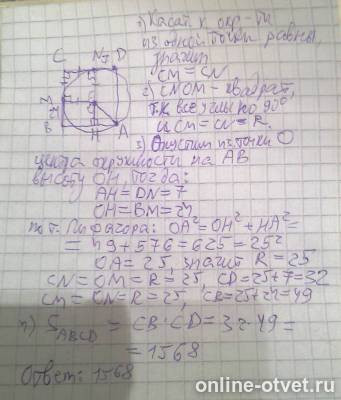 1) Касат. к окр-ти
из одной точки равны,
значит
CM = CN
2) CNOM - квадрат,
т.к. все углы по 90°
и CM = CN = R.
3) Опустим из точки O
центра окружности на AB
высоту OH, тогда:
AH = DN = 7
OH = BM = 24
по т. Пифагора: OA² = OH² + HA² =
= 49 + 576 = 625 = 25²
OA = 25, значит R = 25
CN = OM = R = 25, CD = 25+7 = 32
CM = ON = R = 25, CB = 25+24 = 49
S_ABCD = CB · CD = 32 · 49 =
= 1568
Ответ: 1568
C N 7 D
M
24
B H A
online-otvet.ru